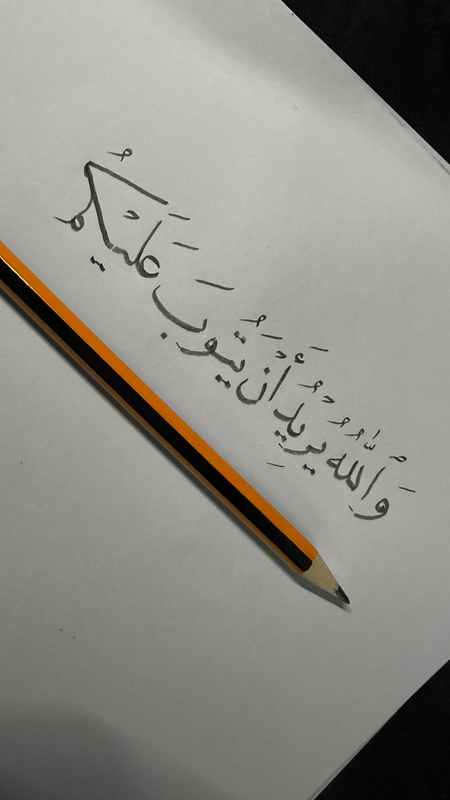 وَٱللَّهُ يُرِيدُ أَنْ يَتُوبَ عَلَيْكُمْ